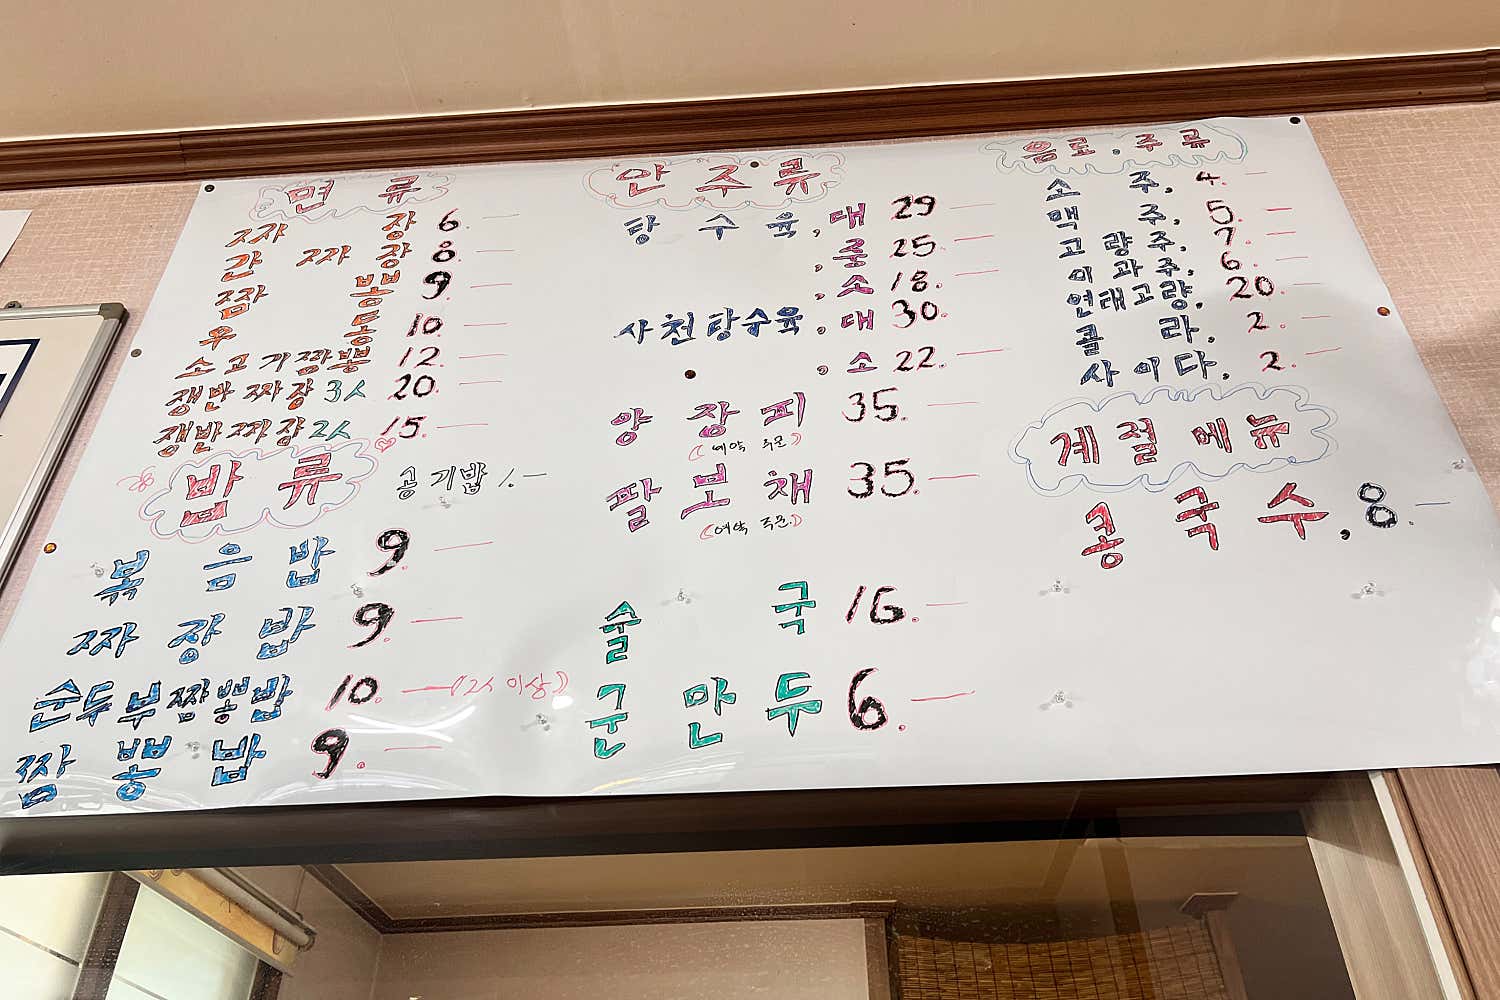 면 류
짜 장 6.—
간 짜 장 8.—
짬 뽕 9.—
우 동 10.—
소고기짬뽕 12.—
쟁반짜장 3人 20.—
쟁반짜장 2人 15.—
밥 류
공기밥 1.—
볶 음 밥 9.—
짜 장 밥 9.—
순두부짬뽕밥 10.— (2人 이상)
짬 뽕 밥 9.—
안 주 류
탕 수 육, 대 29—
, 중 25—
, 소 18.—
사천탕수육, 대 30.
, 소 22.—
양 장 피 35.—
(예약 주문)
팔 보 채 35.—
(예약 주문)
술 국 16.—
군 만 두 6.—
음료, 주류
소 주, 4.—
맥 주, 5.—
고 량 주, 7.—
이 과 주, 6.—
연태고량, 20.—
콜 라, 2.—
사 이 다, 2.—
계절메뉴
콩 국 수, 8.—